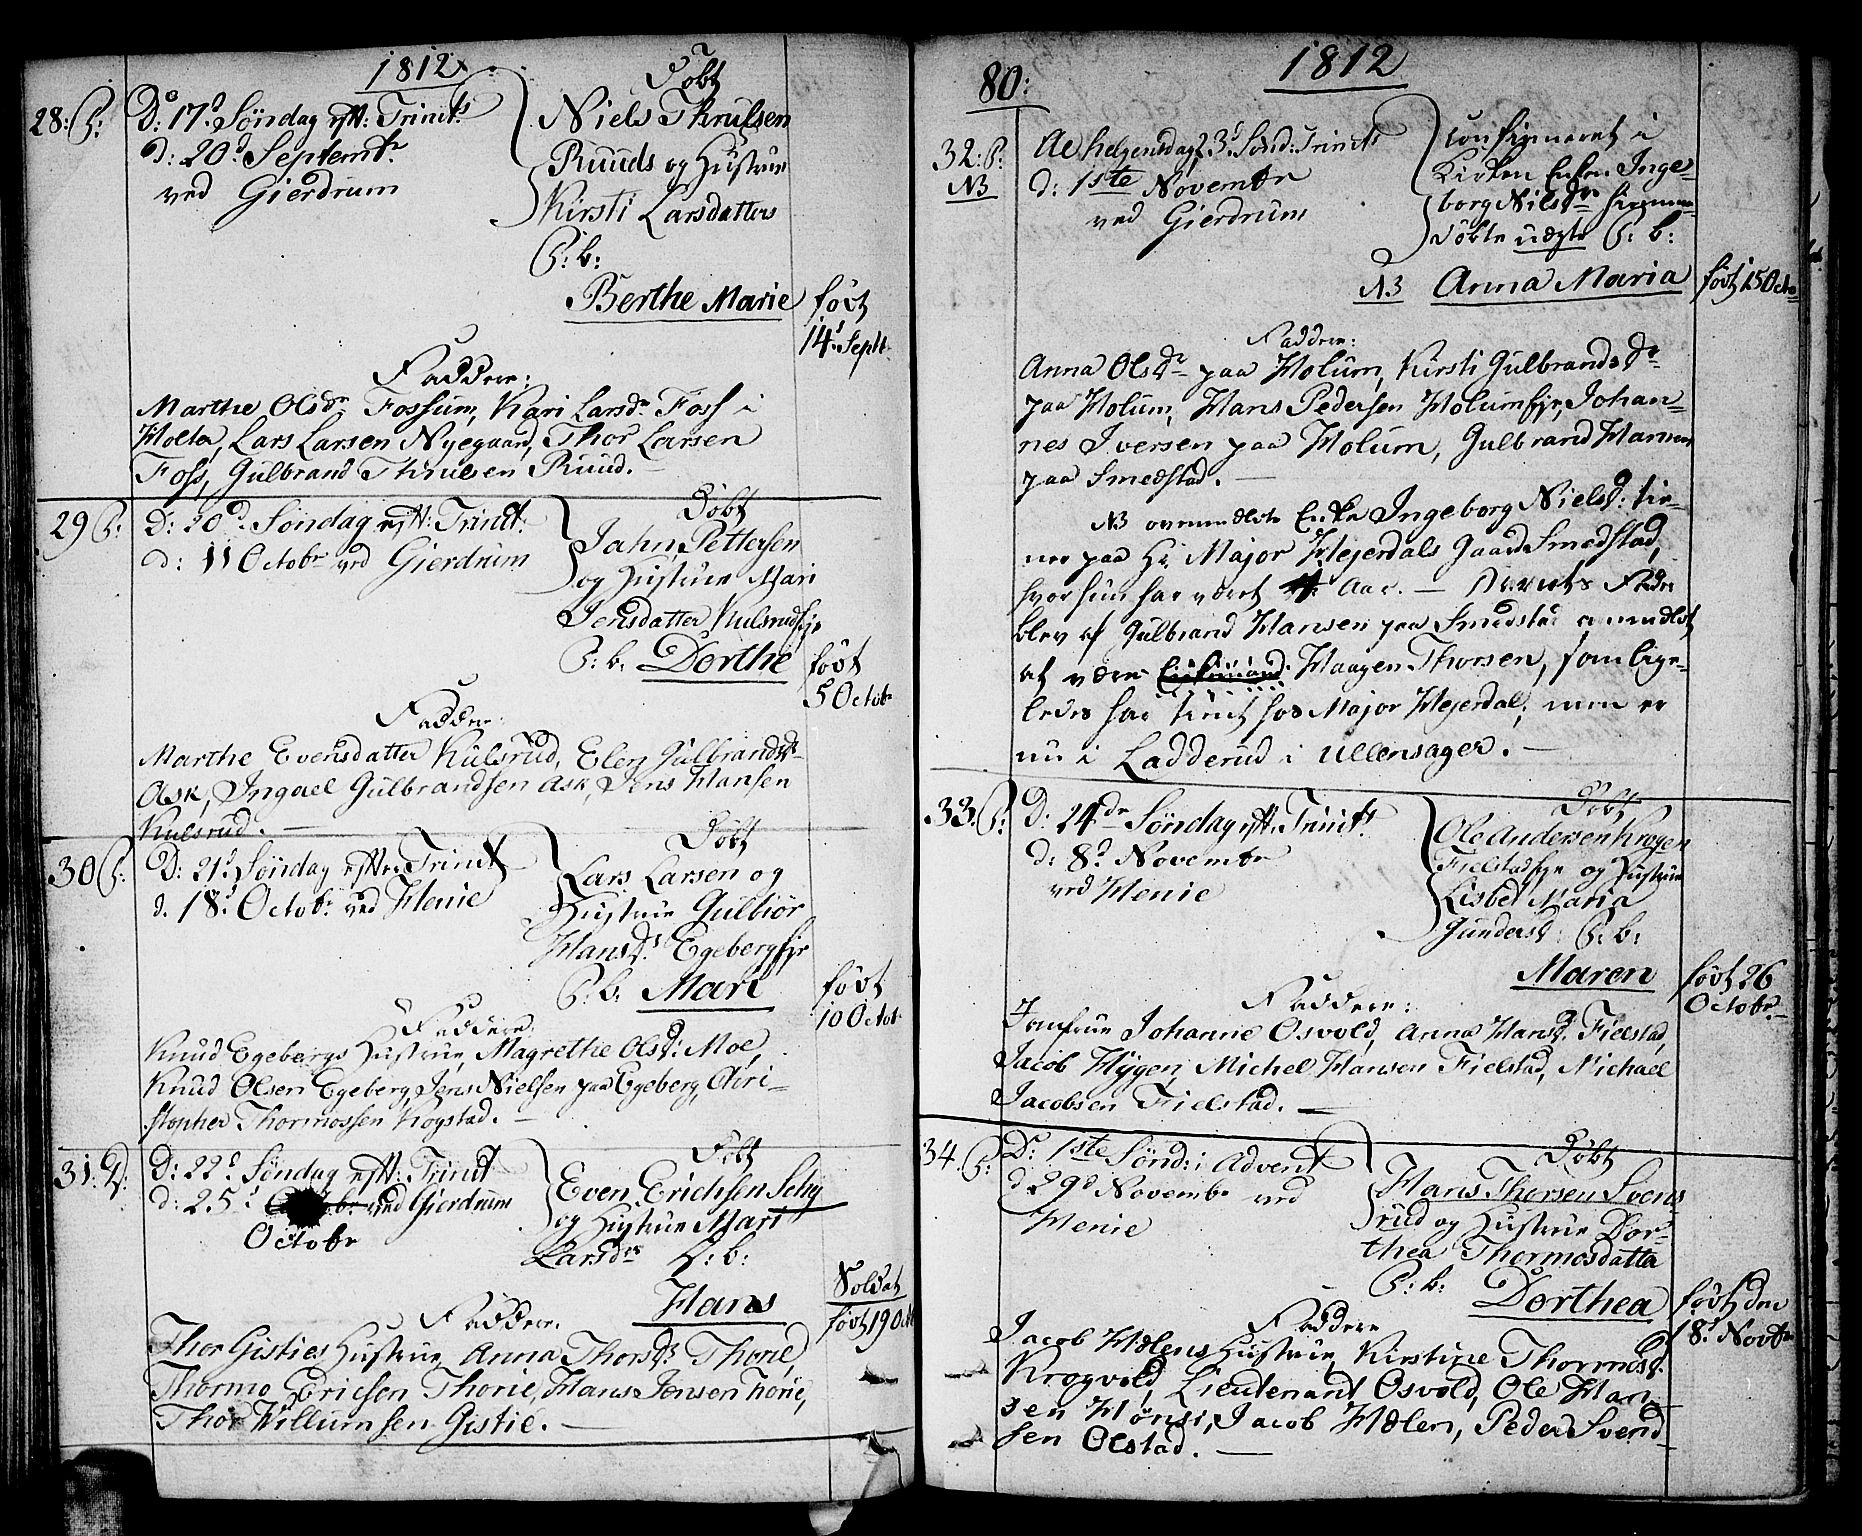 1812
28: P:
D: 17de Søndag eft: Trinits
d: 20d Septembr
ved Gierdrum
Døbt
Niels Thrulsen
Ruuds og Hustrue
Kirsti Larsdatters
P: b:
Berthe Marie
født
14d Septr
Faddere:
Marthe Olsdr Fossum, Kari Larsdr Foss i
Holter, Lars Larsen Nyegaard, Thor Larsen
Foss, Gulbrand Thrulsen Ruud.
29 P:
D: 20d Søndag eft: Trinit:
d: 11 Octobr ved Gierdrum
Døbt
Jahn Pettersen
og Hustrue Mari
Jensdatter Kulsrudeje
P: b: Dorthe
født
5 Octobr
Faddere:
Marthe Evensdatter Kulsrud, Elen Gulbrandsdr
Ask, Ingael Gulbrandsen Ask, Jens Hansen
Kulsrud.
30 P:
D: 21d Søndag efter Trinit
d. 18d Octobr ved Henie
Døbt
Lars Larsen og
Hustrue Gulbiør
Hansdr Egebergeje
P: b: Mari
født
10 Octob
Faddere:
Knud Egebergs Hustrue, Magrethe Olsd: Moe,
Knud Olsen Egeberg, Jens Nielsen paa Egeberg, Chri-
stopher Thormossen Kogstad.
31. D:
D: 22d Søndag eft: Trinit
d: 25d ved Gierdrum
Octobr
Døbt
Even Erichsen Schy
og Hustrue Mari
Larsdrs P: b:
Hans
Soldat
født 19 Oct
Faddere.
Thor Gisties Hustrue, Anna Thorsdr Thorie,
Thormo Ericsen Thorie, Hans Jensen Thorie,
Thor Willumsen Gistie.
80:
1812
32: P:
NB
Alehelgensdag 23d Sønd: Trinits
d: 1ste Novembr
ved Gierdrum
confirmeret i
Kirken Enken Inge-
borg Nilsdr hiemme
døbte uægte P: b:
NB Anna Maria
født 15 Octbr
Faddere:
Anna Olsdr paa Holum, Kirsti Gulbrandsdr
paa Holum, Hans Pedersen Holumeje, Johan-
nes Iversen paa Holum, Gulbrand Hansen
paa Smedstad.
NB ommeldte Enke Ingeborg Nielsd: tie-
ner paa Hr Major Hejerdals Gaard Smedstad,
hvor hun har været Aar. — Barnets Fader
blev af Gulbrand Hansen paa Smedstad anmeldet
at være Haagen Thorsen, som lige-
ledes har tient hos Major Hejerdal, men er
nu i Ladderud i Ullensager.
33. P:
D: 24de Søndag eft: Trinits
d: 8d Novembr
ved Henie
Døbt
Ole Andersen Krogen
Fielstadeje og Hustrue
Lisbet Maria
Gundersd: P: b:
Maren
født 26
Octobr
Faddere:
Jomfrue Johanne Osvold, Anna Hansdr Fielstad,
Jacob Hygen, Michel Hansen Fielstad, Michael
Jacobsen Fielstad.
34. P:
D: 1ste Sønd: i Advent
d 29d Novembr ved
Henie
Døbt
Hans Thorsen Svens
rud og Hustrue Dor-
thea Thormosdatter
P: b: Dorthea
født den
18d Novbr
Faddere
Jacob Hælens Hustrue, Kirstine Thormosd:
Krogvold, Lieutenant Osvold, Ole Han-
sen Hønsi, Jacob Hælen, Peder Svend-
sen Olstad.